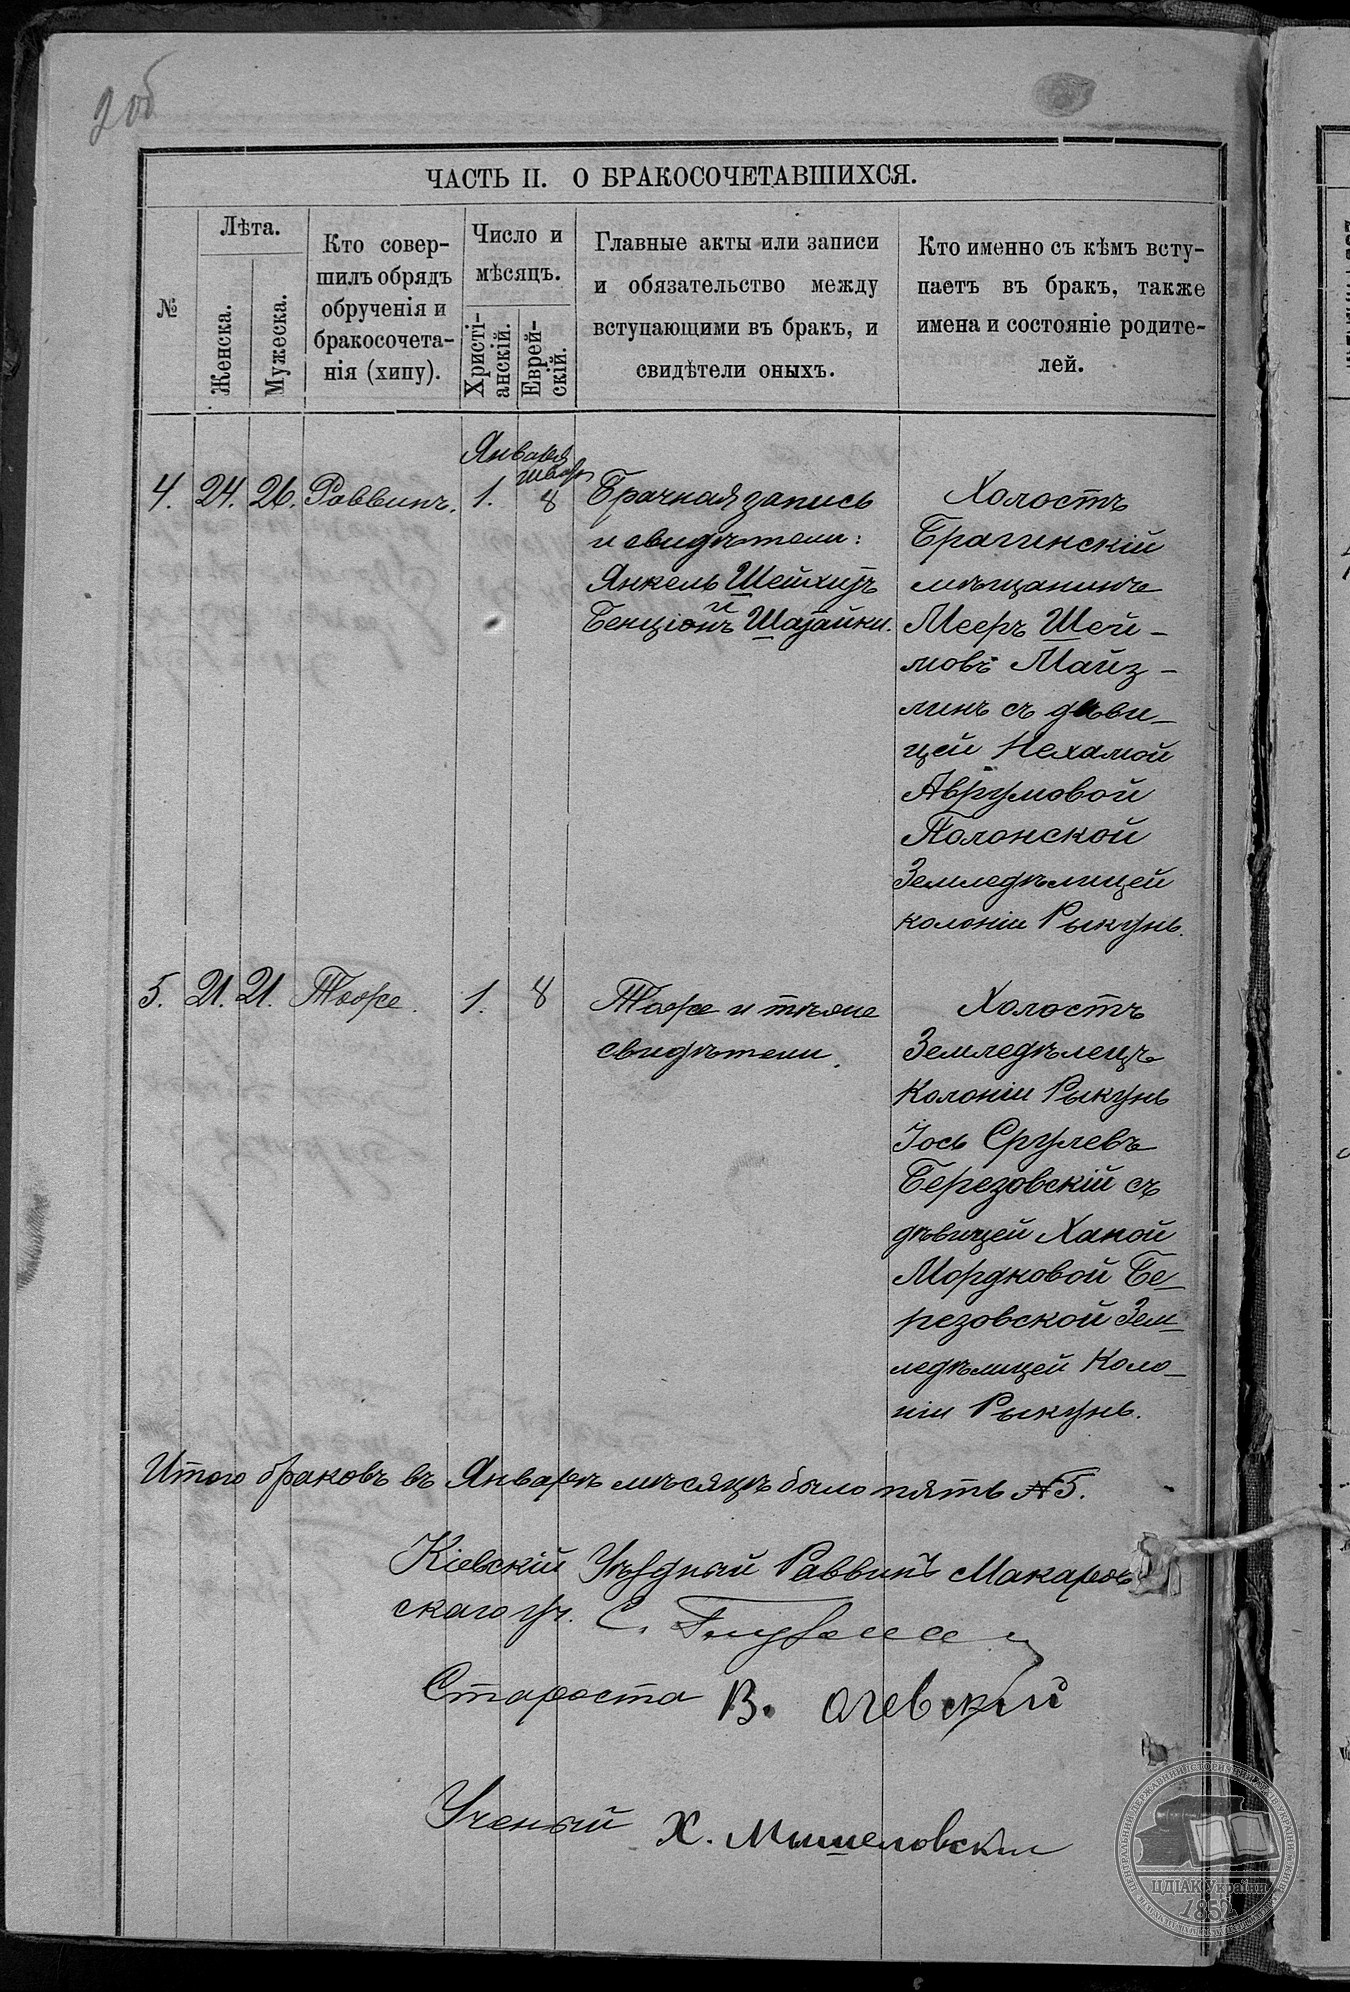 2об
ЧАСТЬ II. О БРАКОСОЧЕТАВШИХСЯ.
№
Лѣта.
Женска.
Мужеска.
Кто совер-
шилъ обрядъ
обрученія и
бракосочета-
нія (хипу).
Число и
мѣсяцъ.
Христі-
анскій.
Еврей-
скій.
Главные акты или записи
и обязательство между
вступающими въ бракъ, и
свидѣтели оныхъ.
Кто именно съ кѣмъ всту-
паетъ въ бракъ, также
имена и состояніе родите-
лей.
Января
4. 24. 26. Раввинъ. 1. 8
Брачная запись
и свидѣтели:
Янкель Шейхитъ
и
Бенціонъ Шапайки.
Холостъ
Брагинскій
мѣщанинъ
Мееръ Шей-
мовъ Майз-
линъ съ дѣви-
цей Нехамой
Аврумовой
Полонской
Земледѣлицей
колоніи Рыкунь.
5. 21. 21. Тоже. 1. 8
Тоже и тѣ же
свидѣтели.
Холостъ
Земледѣлецъ
Колоніи Рыкунь
Іось Срулевъ
Березовскій съ
дѣвицей Ханой
Мордковой Бе-
резовской Зем-
ледѣлицей Коло-
ніи Рыкунь.
Итого браковъ въ Январѣ мѣсяцѣ было пять №5.
Кіевскій Уѣздный Раввинъ Макаров-
скаго уч. С.
Староста В.
Ученый Х. Мышеловскій
ЦДІАК України
1852